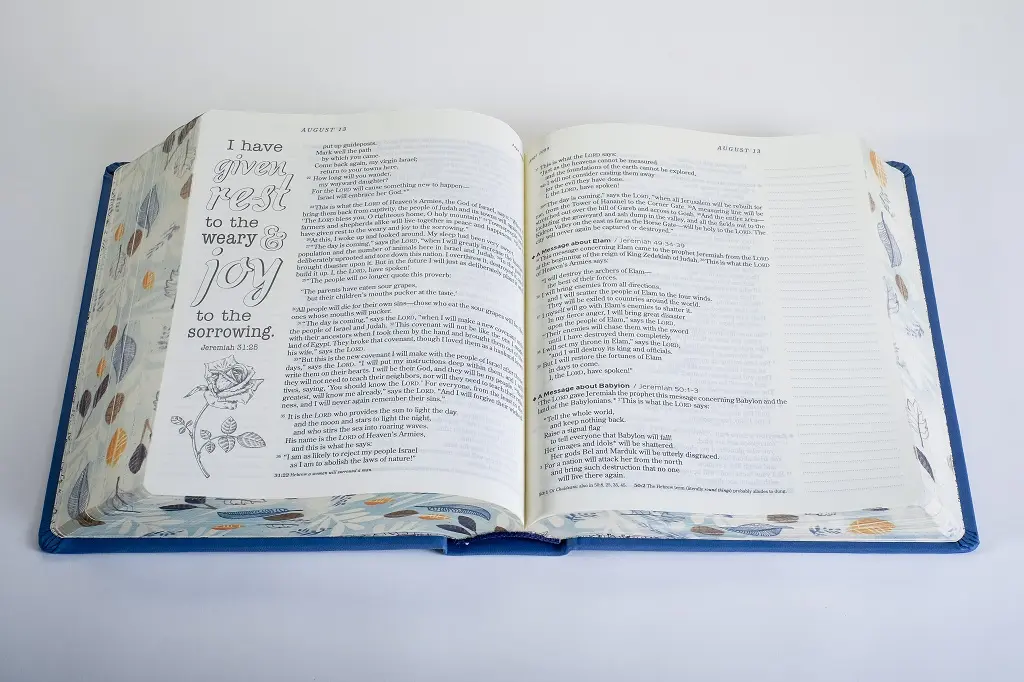 AUGUST 13
I have
given
rest
to the
weary &
joy
to the
sorrowing.
Jeremiah 31:25
put up guideposts.
Mark well the path
by which you came.
Come back again, my virgin Israel;
return to your towns here.
22 How long will you wander,
my wayward daughter?
For the LORD will cause something new to happen—
Israel will embrace her God."*
23 This is what the LORD of Heaven's Armies, the God of Israel, says:
bring them back from captivity, the people of Judah and its towns will
'The LORD bless you, O righteous home, O holy mountain!'
farmers and shepherds alike will live together in peace and happiness.
have given rest to the weary and joy to the sorrowing."
26 At this, I woke up and looked around. My sleep had been very
27 "The day is coming," says the LORD, "when I will greatly increase the
population and the number of animals here in Israel and Judah.
deliberately uprooted and tore down this nation. I overthrew it, destroyed it,
brought disaster upon it. But in the future I will just as deliberately
build it up. I, the LORD, have spoken!
29 "The people will no longer quote this proverb:
'The parents have eaten sour grapes,
but their children's mouths pucker at the taste.'
30 All people will die for their own sins—those who eat the sour grapes will be
ones whose mouths will pucker.
31 "The day is coming," says the LORD, "when I will make a new covenant
the people of Israel and Judah. 32 This covenant will not be like the one
with their ancestors when I took them by the hand and brought them
land of Egypt. They broke that covenant, though I loved them as a husband
his wife," says the LORD.
33 "But this is the new covenant I will make with the people of Israel after
days," says the LORD. "I will put my instructions deep within them, and
write them on their hearts. I will be their God, and they will be my people.
they will not need to teach their neighbors, nor will they need to teach their
tives, saying, 'You should know the LORD.' For everyone, from the least to
greatest, will know me already," says the LORD. "And I will forgive their
ness, and I will never again remember their sins."
35 It is the LORD who provides the sun to light the day
and the moon and stars to light the night,
and who stirs the sea into roaring waves.
His name is the LORD of Heaven's Armies,
and this is what he says:
36 "I am as likely to reject my people Israel
as I am to abolish the laws of nature!"
31:22 Hebrew a woman will surround a man.
AUGUST 13
37 This is what the LORD says:
"Just as the heavens cannot be measured
and the foundations of the earth cannot be explored,
so I will not consider casting them away
for the evil they have done.
I, the LORD, have spoken!
38 "The day is coming," says the LORD, "when all Jerusalem will be rebuilt for
me, from the Tower of Hananel to the Corner Gate. 39 A measuring line will be
stretched out over the hill of Gareb and across to Goah. 40 And the entire area—
including the graveyard and ash dump in the valley, and all the fields out to the
Kidron Valley on the east as far as the Horse Gate—will be holy to the LORD. The
city will never again be captured or destroyed."
A Message about Elam / Jeremiah 49:34-39
This message concerning Elam came to the prophet Jeremiah from the LORD
at the beginning of the reign of King Zedekiah of Judah. 35 This is what the LORD
of Heaven's Armies says:
"I will destroy the archers of Elam—
the best of their forces.
36 I will bring enemies from all directions,
and I will scatter the people of Elam to the four winds.
They will be exiled to countries around the world.
37 I myself will go with Elam's enemies to shatter it.
In my fierce anger, I will bring great disaster
upon the people of Elam," says the LORD.
"Their enemies will chase them with the sword
until I have destroyed them completely.
38 I will set my throne in Elam," says the LORD,
"and I will destroy its king and officials.
39 But I will restore the fortunes of Elam
in days to come.
I, the LORD, have spoken!"
A Message about Babylon / Jeremiah 50:1-3
The LORD gave Jeremiah the prophet this message concerning Babylon and the
land of the Babylonians.* 2 This is what the LORD says:
"Tell the whole world,
and keep nothing back.
Raise a signal flag
to tell everyone that Babylon will fall!
Her images and idols* will be shattered.
Her gods Bel and Marduk will be utterly disgraced.
3 For a nation will attack her from the north
and bring such destruction that no one
will live there again.
50:1 Or Chaldeans; also in 50:8, 25, 35, 45. 50:2 The Hebrew term (literally round things) probably alludes to dung.